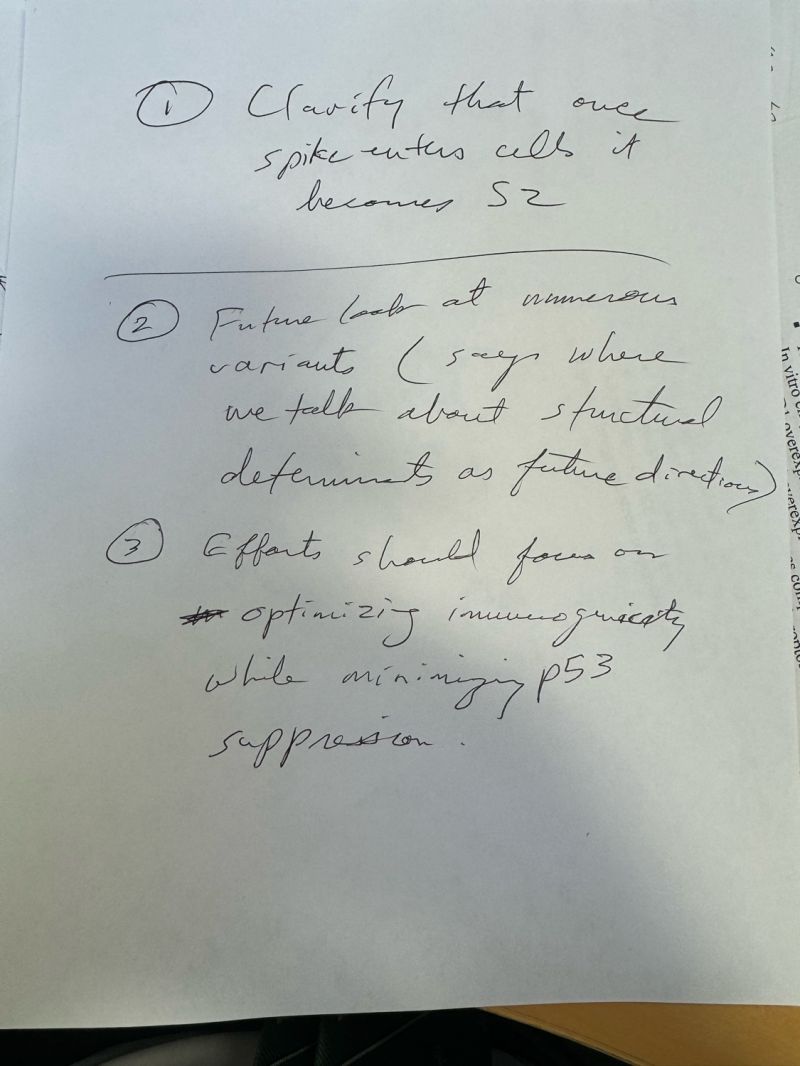 ① Clarify that once
spike enters cells it
becomes S2
② Future look at numerous
variants (says where
we talk about structural
determinants as future directions)
③ Efforts should focus on
optimizing immunogenicity
while minimizing p53
suppression.
In vitro
overexp